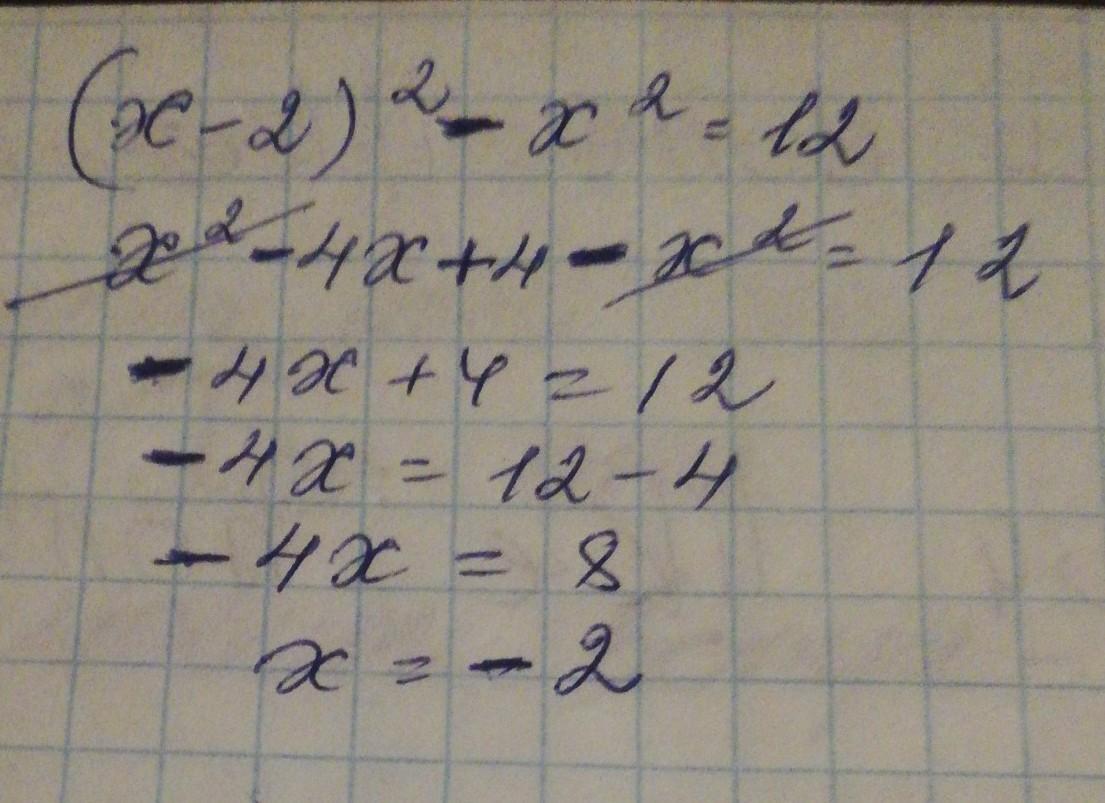 (x-2)² - x² = 12
x² - 4x + 4 - x² = 12
- 4x + 4 = 12
- 4x = 12 - 4
- 4x = 8
x = - 2